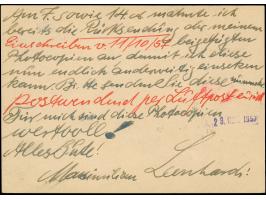 Am 7. sowie 14. d mahnte ich
bereits die Rücksendung der meinem
Einschreiben v. 11/10/57 beigefügten
Photocopien an, damit ich diese
nun endlich anderweitig einsetzen
kann. Bitte senden Sie diese nunmehr
postwendend per Luftpost zurück
Für mich sind diese Photocopien
wertvoll!
Alles Gute!
Maximilian Leenhardi